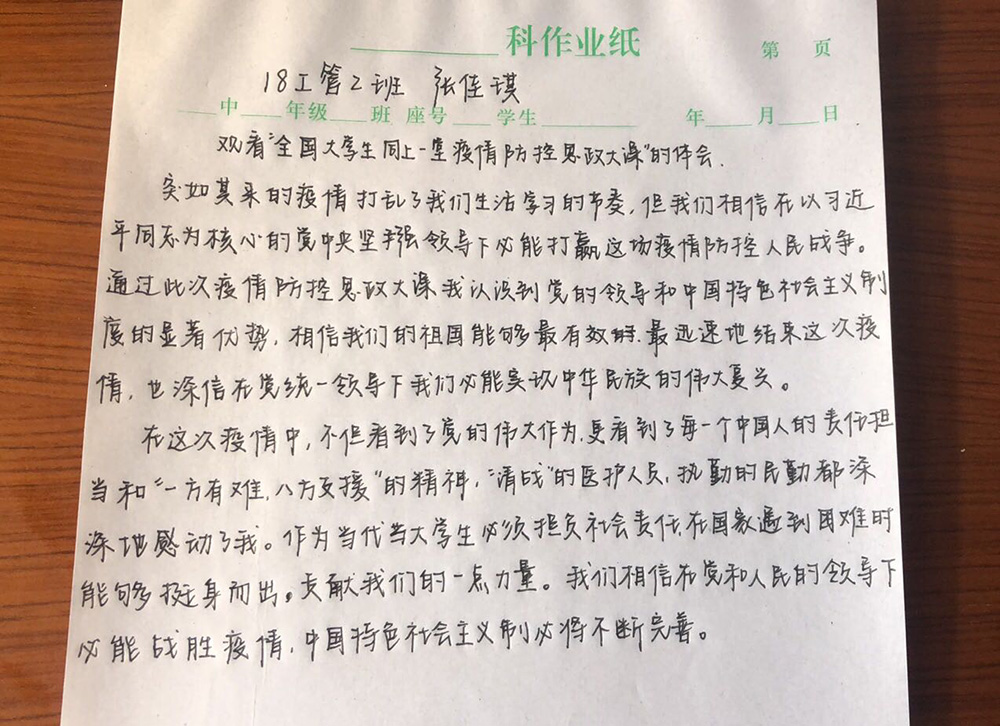 科作业纸 第 页
18工管2班 张佳琪
中 年级 班 座号 学生 年 月 日
观看“全国大学生同上一堂疫情防控思政大课”的体会.
突如其来的疫情打乱了我们生活学习的节奏,但我们相信在以习近
平同志为核心的党中央坚强领导下必能打赢这场疫情防控人民战争。
通过此次疫情防控思政大课我认识到党的领导和中国特色社会主义制
度的显著优势,相信我们的祖国能够最有效、最迅速地结束这次疫
情,也深信在党统一领导下我们必能实现中华民族的伟大复兴。
在这次疫情中,不但看到了党的伟大作为,更看到了每一个中国人的责任担
当和“一方有难,八方支援”的精神,“请战”的医护人员,执勤的民勤都深
深地感动了我。作为当代当大学生必须担负社会责任,在国家遇到困难时
能够挺身而出。贡献我们的一点力量。我们相信在党和人民的领导下
必能战胜疫情,中国特色社会主义制必将不断完善。